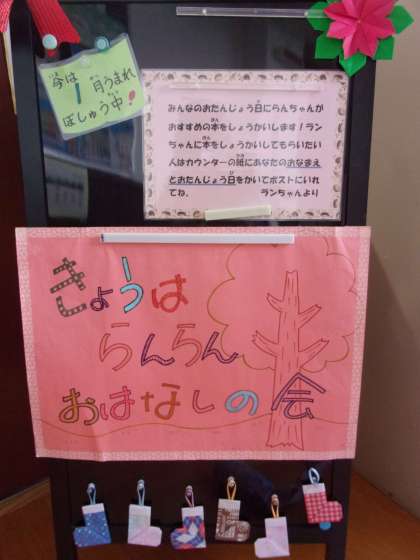 今は
1月うまれ
ぼしゅう中!
みんなのおたんじょう日にらんちゃんが
おすすめの本をしょうかいします!ラン
ちゃんに本をしょうかいしてもらいたい
人はカウンターの紙にあなたのおなまえ
とおたんじょう日をかいてポストにいれ
てね。 ランちゃんより
きょうは
らんらん
おはなしの会